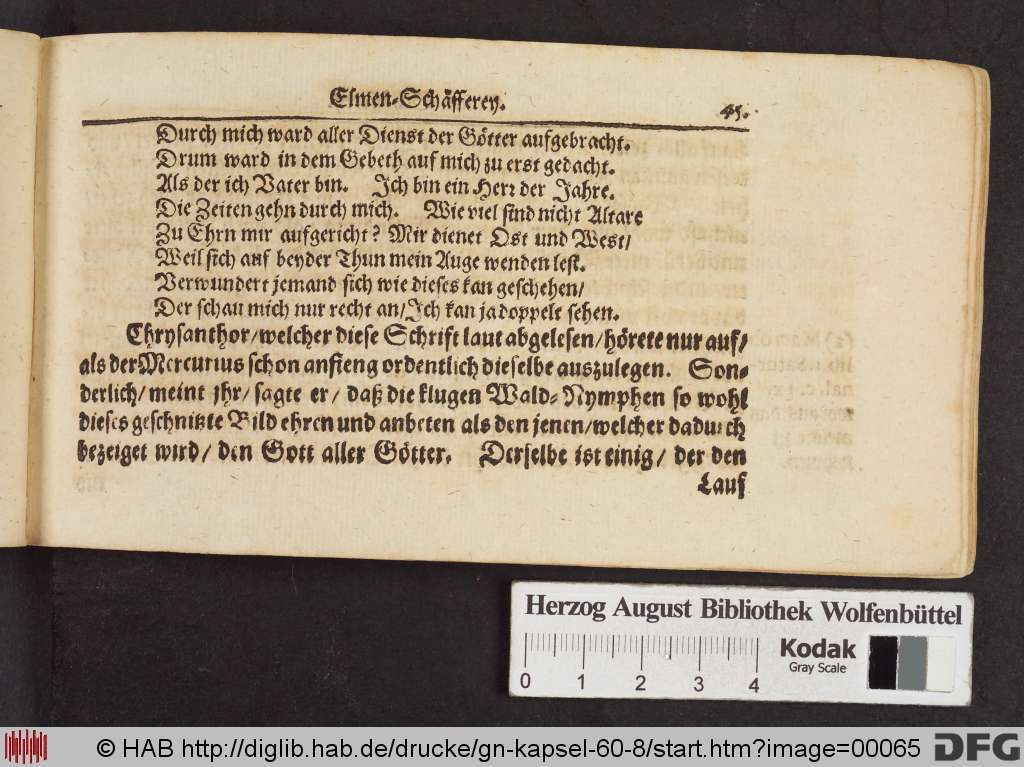 Elmen-Schäfferey. 45.
Durch mich ward aller Dienst der Götter aufgebracht.
Drum ward in dem Gebeth auf mich zu erst gedacht.
Als der ich Vater bin. Ich bin ein Herr der Jahre.
Die Zeiten gehn durch mich. Wie viel sind nicht Altare
Zu Ehrn mir aufgericht? Mir dienet Ost und West/
Weil sich auf beyder Thun mein Auge wenden lest.
Verwundert jemand sich wie dieses kan geschehen/
Der schau mich nur recht an/Ich kan ja doppelt sehen.
Chrysanthor/welcher diese Schrift laut abgelesen/hörete nur auf/
als der Mercurius schon anfieng ordentlich dieselbe auszulegen. Son-
derlich/ meint jhr/ sagte er/ daß die klugen Wald-Nymphen so wohl
dieses geschnitzte Bild ehren und anbeten als den jenen/welcher dadurch
bezeiget wird/ den Gott aller Götter. Derselbe ist einig/ der den
Lauf
Herzog August Bibliothek Wolfenbüttel
0 1 2 3 4
Kodak
Gray Scale
© HAB http://diglib.hab.de/drucke/gn-kapsel-60-8/start.htm?image=00065
DFG